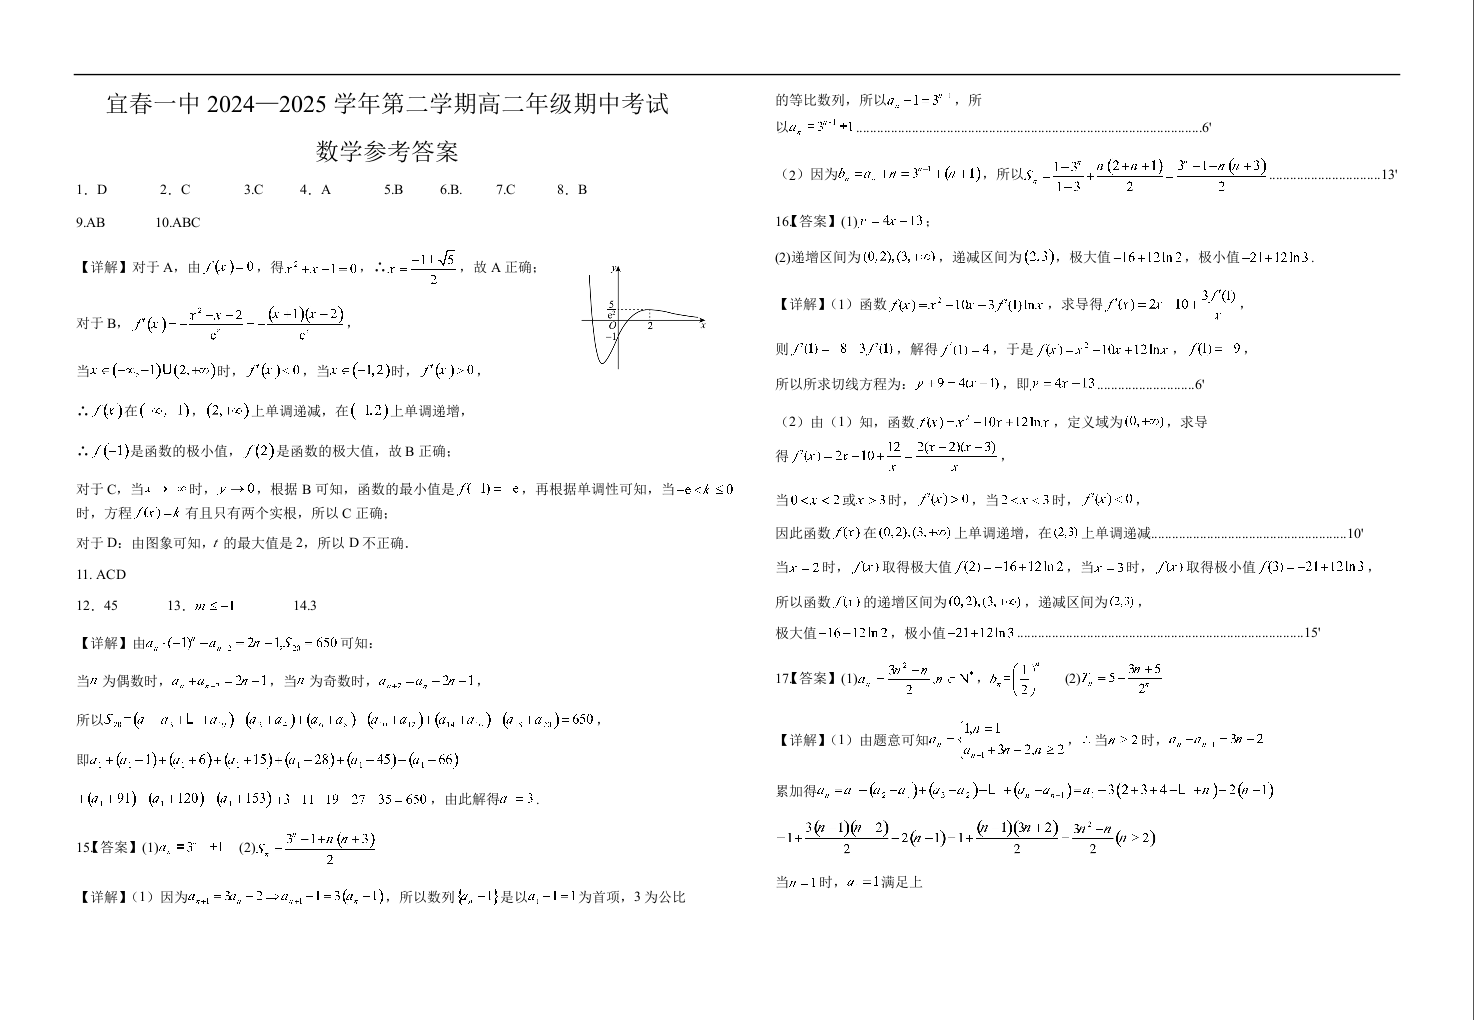 宜春一中 2024—2025 学年第二学期高二年级期中考试
数学参考答案
1．D 2．C 3.C 4．A 5.B 6.B. 7.C 8．B
9.AB 10.ABC
【详解】对于 A，由 f(x)=0，得 x²+x-1=0，∴ x=(-1±√5)/2，故 A 正确；
对于 B，f′(x)=-(x²-x-2)/eˣ=-(x+1)(x-2)/eˣ，
当x∈(-∞,-1)∪(2,+∞)时，f′(x)<0，当x∈(-1,2)时，f′(x)>0，
∴ f(x)在(-∞,-1)，(2,+∞)上单调递减，在(-1,2)上单调递增，
∴ f(-1)是函数的极小值，f(2)是函数的极大值，故 B 正确；
对于 C，当x→+∞时，y→0，根据 B 可知，函数的最小值是 f(-1)=-e，再根据单调性可知，当-e<k≤0
时，方程 f(x)=k 有且只有两个实根，所以 C 正确；
对于 D：由图象可知，t 的最大值是 2，所以 D 不正确．
y
5/e²
O
2
x
-1
11. ACD
12．45 13．m≤-1 14.3
【详解】由 可知：
当n 为偶数时，，当n 为奇数时，，
所以 ，
即
，由此解得a₁=3．
15【答案】(1)aₙ=3ⁿ⁻¹+1 (2)Sₙ=(3ⁿ-1+n(n+3))/2
【详解】（1）因为aₙ₊₁=3aₙ-2⇒aₙ₊₁-1=3(aₙ-1)，所以数列{aₙ-1}是以a₁-1=1为首项，3 为公比
的等比数列，所以aₙ-1=3ⁿ⁻¹，所
以aₙ=3ⁿ⁻¹+1 ....................6'
（2）因为bₙ=aₙ+n=3ⁿ⁻¹+(n+1)，所以Sₙ=(1-3ⁿ)/(1-3)+n(2+n+1)/2=(3ⁿ-1+n(n+3))/2 ....................13'
16【答案】(1) y=4x-13；
(2)递增区间为(0,2),(3,+∞)，递减区间为(2,3)，极大值-16+12ln2，极小值-21+12ln3．
【详解】（1）函数 f(x)=x²-10x+3f′(1)lnx，求导得 f′(x)=2x-10+3f′(1)/x，
则 f′(1)=-8+3f′(1)，解得 f′(1)=4，于是 f(x)=x²-10x+12lnx，f(1)=-9，
所以所求切线方程为：y+9=4(x-1)，即y=4x-13....................6'
（2）由（1）知，函数 f(x)=x²-10x+12lnx，定义域为(0,+∞)，求导
得 f′(x)=2x-10+12/x=2(x-2)(x-3)/x，
当0<x<2或x>3时，f′(x)>0，当2<x<3时，f′(x)<0，
因此函数 f(x) 在(0,2),(3,+∞)上单调递增，在(2,3)上单调递减....................10'
当x=2时，f(x) 取得极大值 f(2)=-16+12ln2，当x=3时，f(x) 取得极小值 f(3)=-21+12ln3，
所以函数 f(x) 的递增区间为(0,2),(3,+∞)，递减区间为(2,3)，
极大值-16+12ln2，极小值-21+12ln3....................15'
17【答案】(1)aₙ=(3n²-n)/2,n∈N*，bₙ=(1/2)ⁿ (2)Tₙ=5-(3n+5)/2ⁿ
【详解】（1）由题意可知aₙ={1,n=1
aₙ₋₁+3n-2,n≥2，∴当n≥2时，aₙ-aₙ₋₁=3n-2
累加得
=(3n²-n)/2(n≥2)
当n=1时，a₁=1满足上